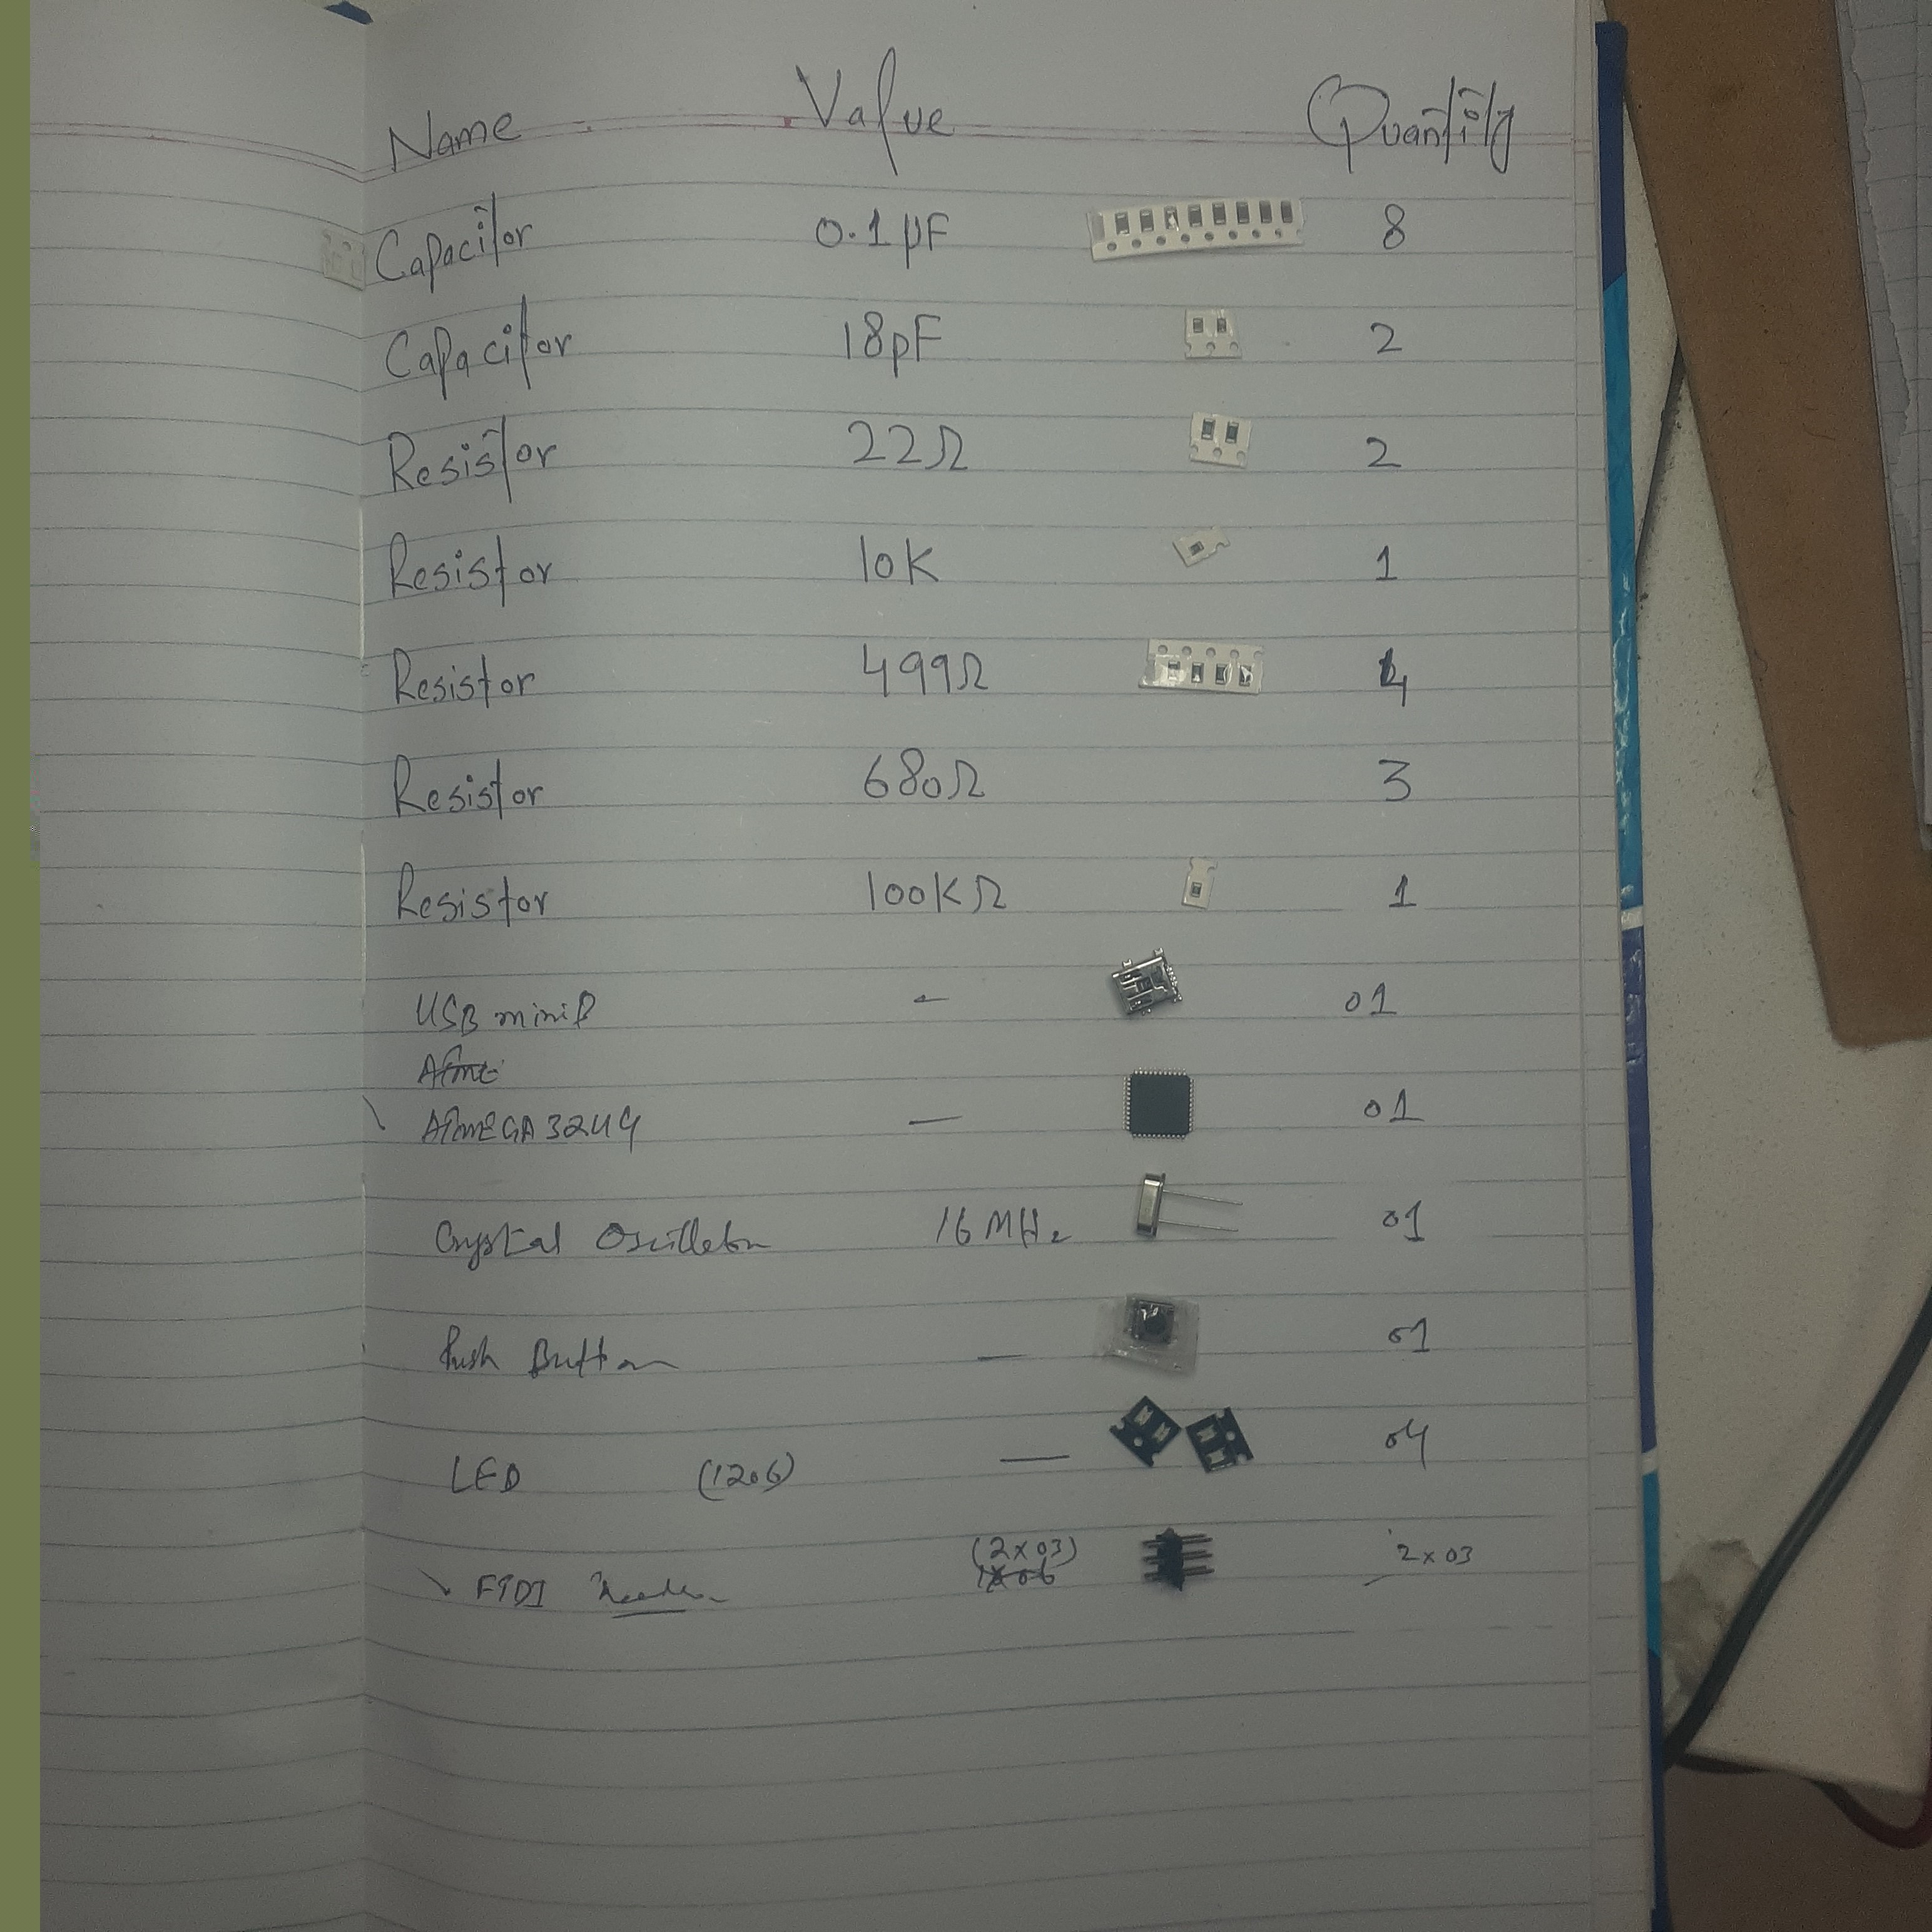 Name Value Quantity
Capacitor 0.1 µF 8
Capacitor 18pF 2
Resistor 22Ω 2
Resistor 10K 1
Resistor 499Ω 4
Resistor 680Ω 3
Resistor 100KΩ 1
USB mini B — 01
ATmE
ATmEGA 32U4 — 01
Crystal Oscillator 16 MHz 01
Push Button — 01
LED (1206) — 04
(2x03)
FTDI Header 1x06 2x03